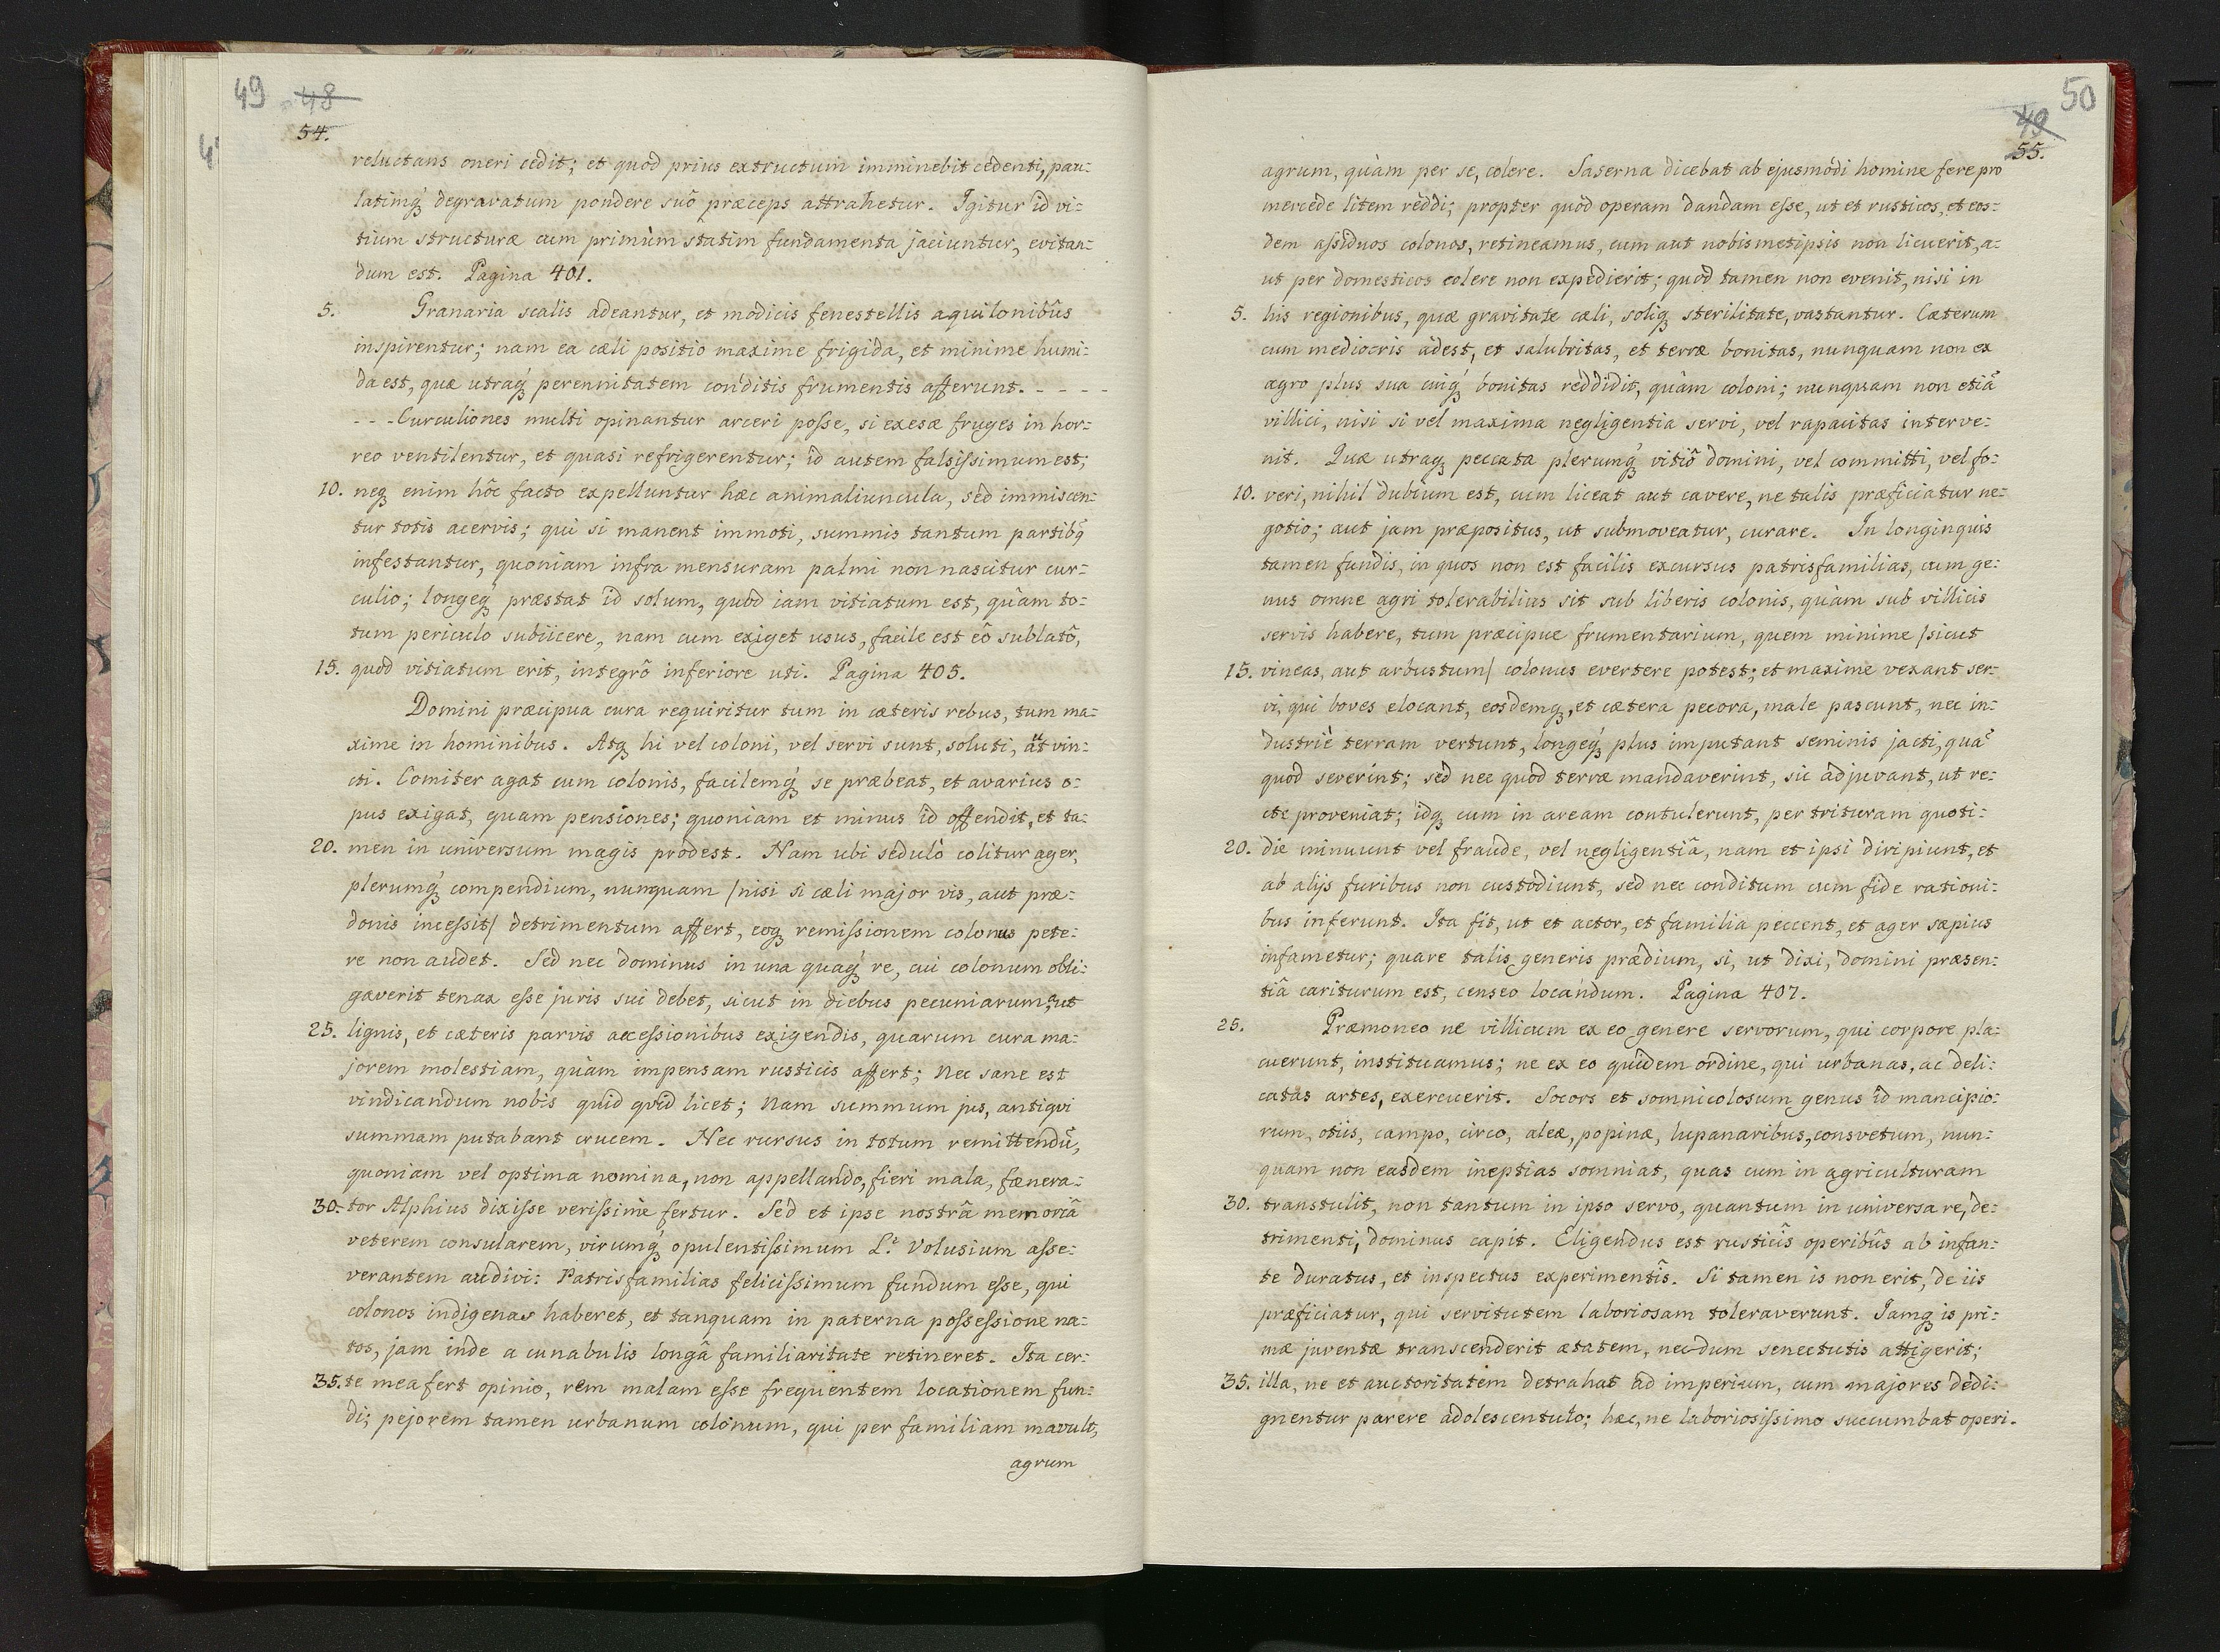 49 48
54.
reluctans oneri cedit; et quod prius extructum imminebit cedenti, pau-
latimq́ degravatum pondere suô præceps attrahetur. Igitur id vi-
tium structuræ cum primùm statim fundamenta jaciuntur, evitan-
dum est. Pagina 401.
5. Granaria scalis adeantur, et modicis fenestellis aquilonibûs
inspirentur; nam ea cæli positio maxime frigida, et minime humi-
da est, quæ utraq́ perennitatem conditis frumentis afferunt. - - - -
- - - Curculiones multi opinantur arceri posse, si exesæ fruges in hor-
reo ventilentur, et quasi refrigerentur; id autem falsissimum est;
10. neq enim hôc facto expelluntur hæc animaliuncula, sed immiscen-
tur totis acervis; qui si manent immoti, summis tantum partibq̃
infestantur, quoniam infra mensuram palmi non nascitur cur-
culio; longeq́ præstat id solum, quod iam vitiatum est, quàm to-
tum periculo subiicere, nam cum exiget usus, facile est eô sublatô,
15. quod vitiatum erit, integrô inferiore uti. Pagina 405.
Domini præcipua cura requiritur tum in cæteris rebus, tum ma-
xime in hominibus. Atq hi vel coloni, vel servi sunt, soluti, aut vin-
cti. Comiter agat cum colonis, facilemq́ se præbeat, et avarius o-
pus exigat, quam pensiones; quoniam et minus id offendit, et ta-
20. men in universum magis prodest. Nam ubi sedulò colitur ager,
plerumq́ compendium, nunquam /nisi si cæli major vis, aut præ-
donis incessit/ detrimentum affert, eoq remissionem colonus pete-
re non audet. Sed nec dominus in una quaq́ re, cui colonum obli-
gaverit tenax esse juris sui debet, sicut in diebus pecuniarum, ut
25. lignis, et cæteris parvis accessionibus exigendis, quarum cura ma-
jorem molestiam, quàm impensam rusticis affert; Nec sane est
vindicandum nobis quid qvid licet; Nam summum jus, antiqvi
summam putabant crucem. Nec rursus in totum remittendũ,
quoniam vel optima nomina, non appellando, fieri mala, fænera-
30. tor Alphius dixisse verissimè fertur. Sed et ipse nostrâ memoriâ
veterem consularem, virumq́ opulentissimum L.^t Volusium asse-
verantem audivi: Patrisfamilias felicissimum fundum esse, qui
colonos indigenas haberet, et tanquam in paterna possessione na-
tos, jam inde a cunabulis longâ familiaritate retineret. Ita cer-
35. te mea fert opinio, rem malam esse frequentem locationem fun-
di; pejorem tamen urbanum colonum, qui per familiam mavult,
agrum
50
49
55.
agrum, quàm per se, colere. Saserna dicebat ab ejusmodi homine fere pro
mercede litem reddi; propter quòd operam dandam esse, ut et rusticos, et eos-
dem assiduos colonos, retineamus, cum aut nobismetipsis non licuerit, a-
ut per domesticos colere non expedierit; quod tamen non evenit, nisi in
5. his regionibus, quæ gravitate cæli, soliq sterilitate, vastantur. Cæterum
cum mediocris adest, et salubritas, et terræ bonitas, nunquam non ex
agro plus sua cuiq́ bonitas reddidit, quàm coloni; nunquam non etiã
villici, nisi si vel maxima negligentia servi, vel rapacitas interve-
nit. Quæ utraq peccata plerumq́ vitiô domini, vel committi, vel fo-
10. veri, nihil dubium est, cum liceat aut cavere, ne talis præficiatur ne-
gotio; aut jam præpositus, ut submoveatur, curare. In longinquis
tamen fundis, in quos non est facilis excursus patrisfamilias, cum ge-
nus omne agri tolerabilius sit sub liberis colonis, quàm sub villicis
servis habere, tum præcipue frumentarium, quem minime /sicut
15. vineas, aut arbustum/ colonus evertere potest; et maxime vexant ser-
vi, qui boves elocant, eosdemq, et cætera pecora, male pascunt, nec in-
dustriè terram vertunt, longeq́ plus imputant seminis jacti, quã
quod severint; sed nec quod terræ mandaverint, sic adjuvant, ut re-
cte proveniat; idq cum in aream contulerunt, per trituram quoti-
20. die minuunt vel fraude, vel negligentiâ, nam et ipsi diripiunt, et
ab alijs furibus non custodiunt, sed nec conditum cum fide rationi-
bus inferunt. Ita fit, ut et actor, et familia peccent, et ager sæpius
infametur; quare talis generis prædium, si, ut dixi, domini præsen-
tiâ cariturum est, censeo locandum. Pagina 407.
25. Præmoneo ne villicum ex eo genere servorum, qui corpore pla-
cuerunt, instituamus; ne ex eo quidem ordine, qui urbanas, ac deli-
catas artes, exercuerit. Socors et somnicolosum genus id mancipio-
rum, otiis, campo, circo, aleæ, popinæ, lupanaribus, consvetum, nun-
quam non easdem ineptias somniat, quas cum in agriculturam
30. transtulit, non tantum in ipso servo, quantum in universa re, de-
trimenti, dominus capit. Eligendus est rusticîs operibûs ab infan-
te duratus, et inspectus experimentîs. Si tamen is non erit, de iis
præficiatur, qui servitutem laboriosam toleraverunt. Iamq is pri-
mæ juventæ transcenderit ætatem, necdum senectutis attigerit;
35. illa, ne et auctoritatem detrahat ad imperium, cum majores dedi-
gnentur parere adolescentulo; hæc, ne laboriosissimo succumbat operi.